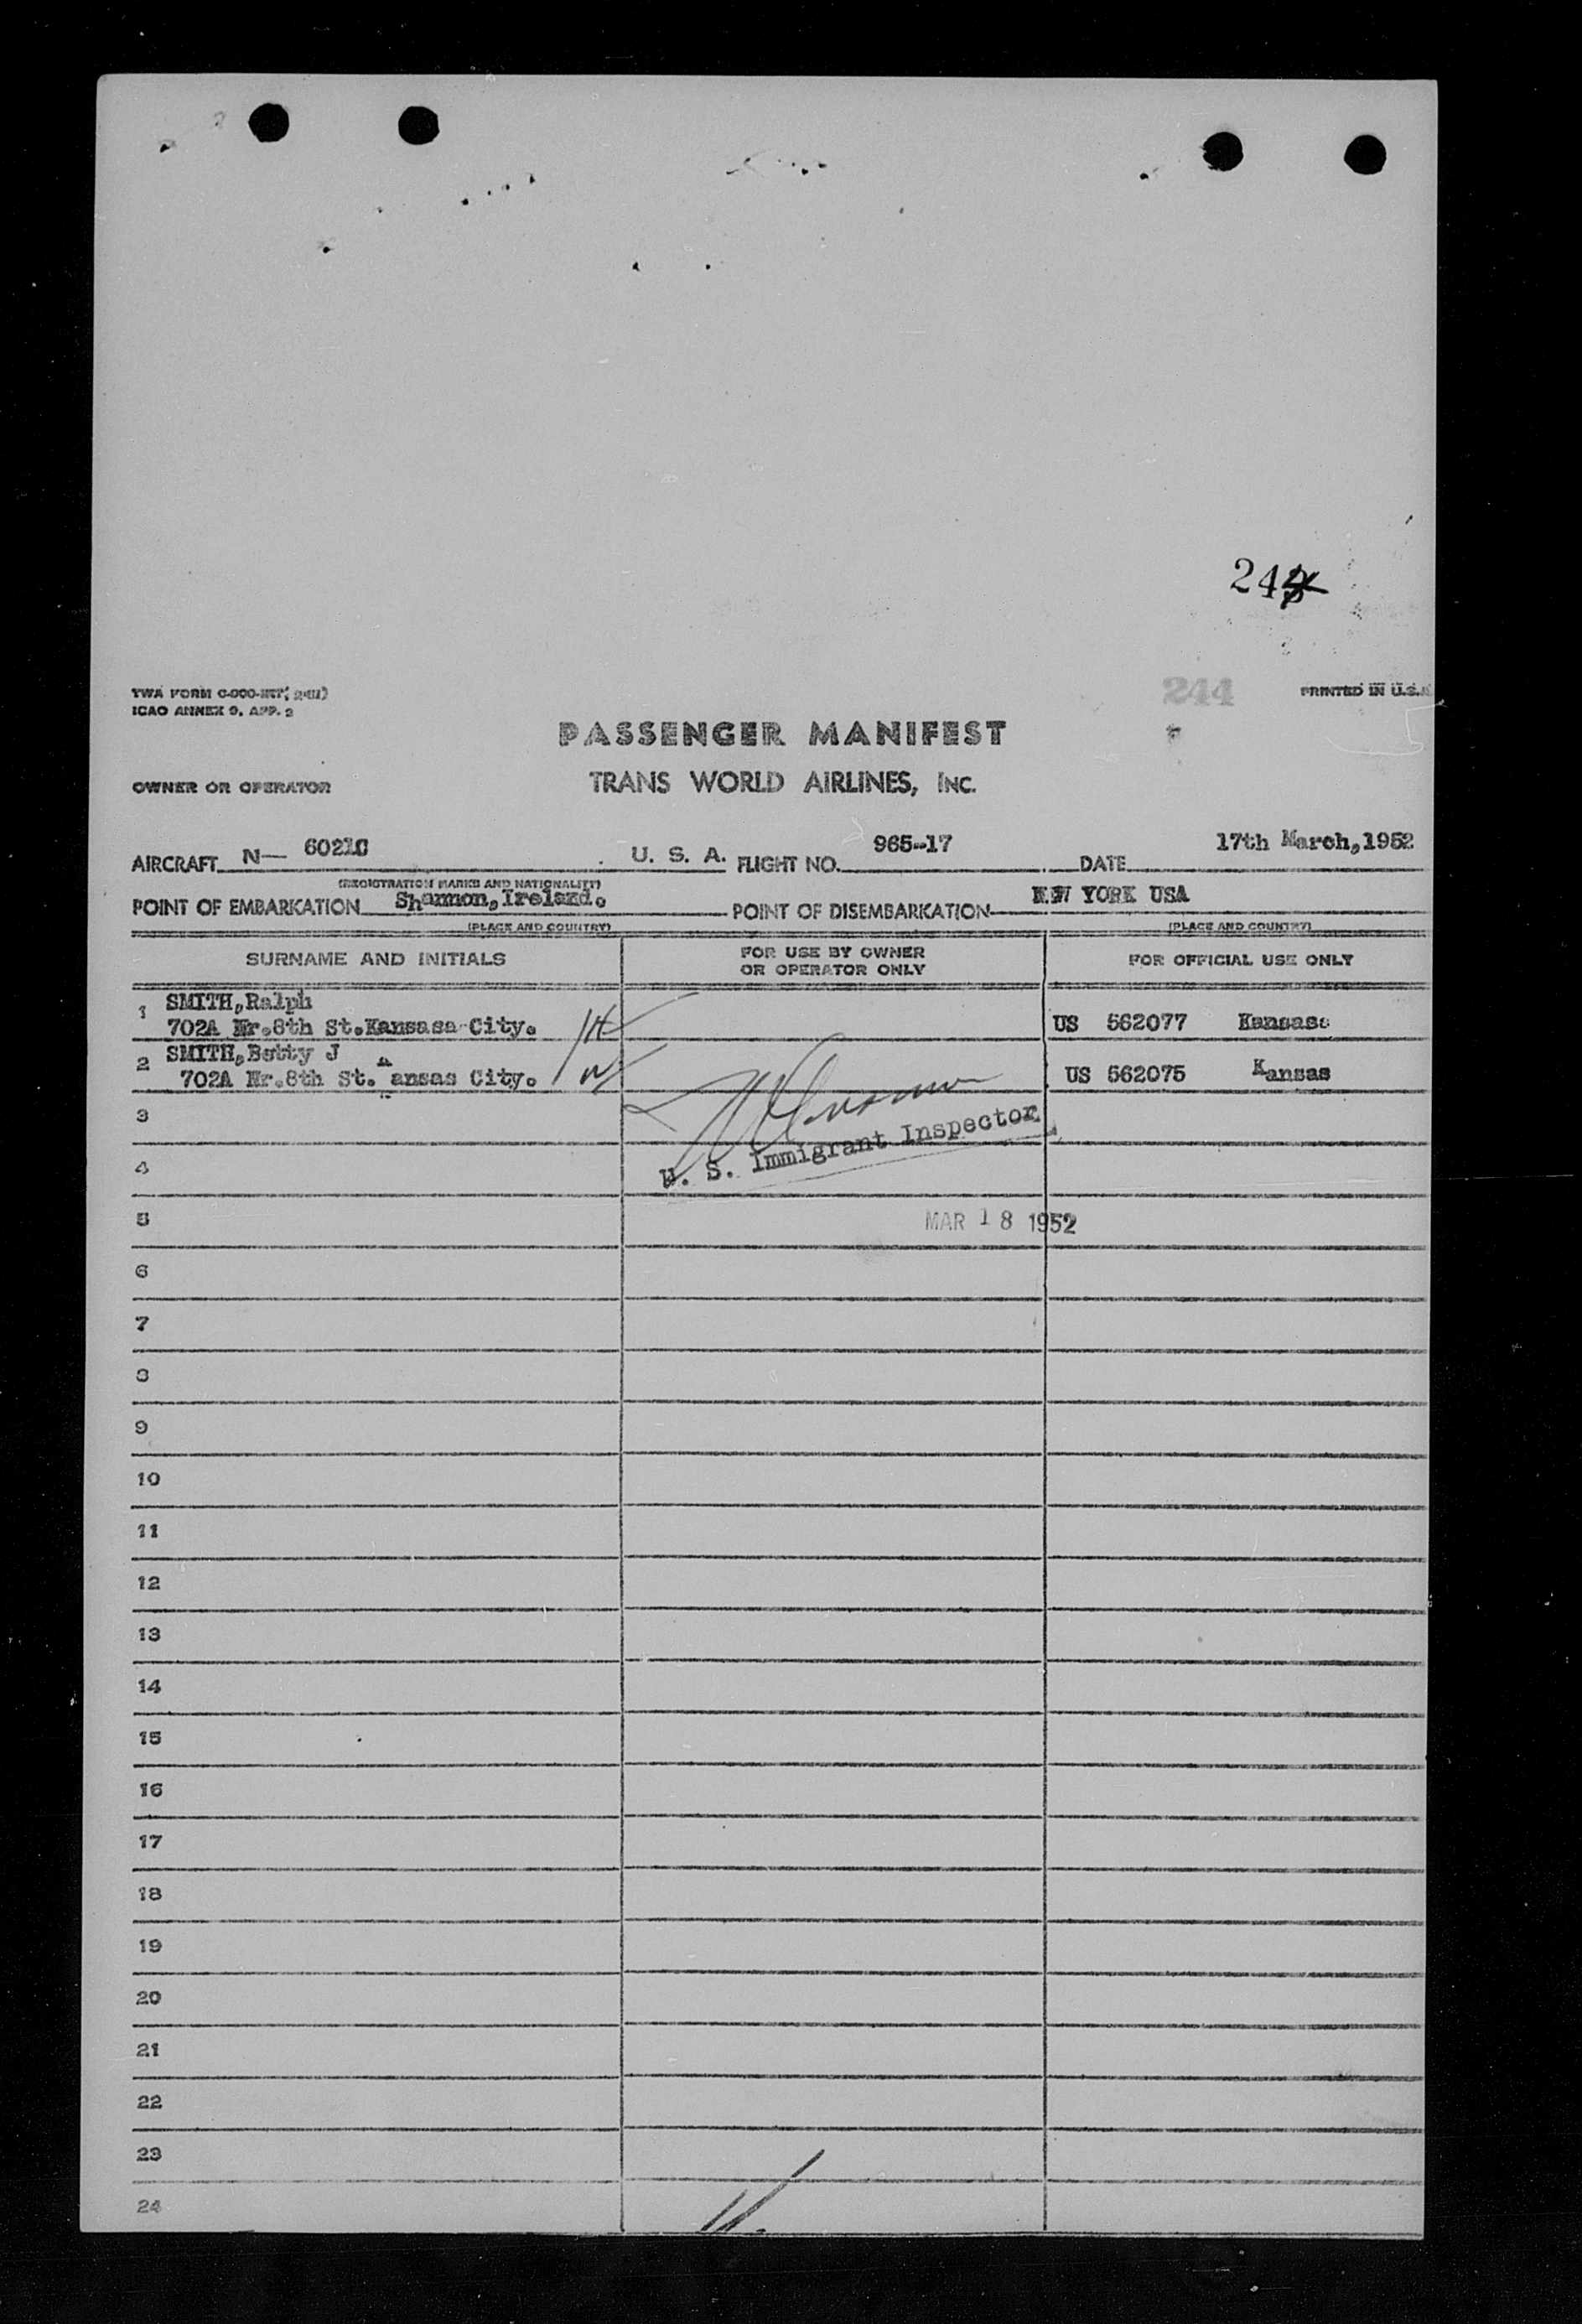 244
TWA FORM
244
PRINTED IN U.S.A
ICAO ANNEX 9, APP. 2
PASSENGER MANIFEST
OWNER OR OPERATOR
TRANS WORLD AIRLINES, INC.
AIRCRAFT N— 6021C U. S. A. FLIGHT NO. 965-17 DATE 17th March,1952
(REGISTRATION MARKS AND NATIONALITY)
POINT OF EMBARKATION Shannon,Ireland. POINT OF DISEMBARKATION NEW YORK USA
(PLACE AND COUNTRY) (PLACE AND COUNTRY)
SURNAME AND INITIALS FOR USE BY OWNER OR OPERATOR ONLY FOR OFFICIAL USE ONLY
1 SMITH,Ralph
702A Nr.8th St.Kansasa City. US 562077 Kansass
2 SMITH,Betty J
702A Nr.8th St. ansas City. US 562075 Kansas
3
U. S. Immigrant Inspector
4
5 MAR 18 1952
6
7
8
9
10
11
12
13
14
15
16
17
18
19
20
21
22
23
24